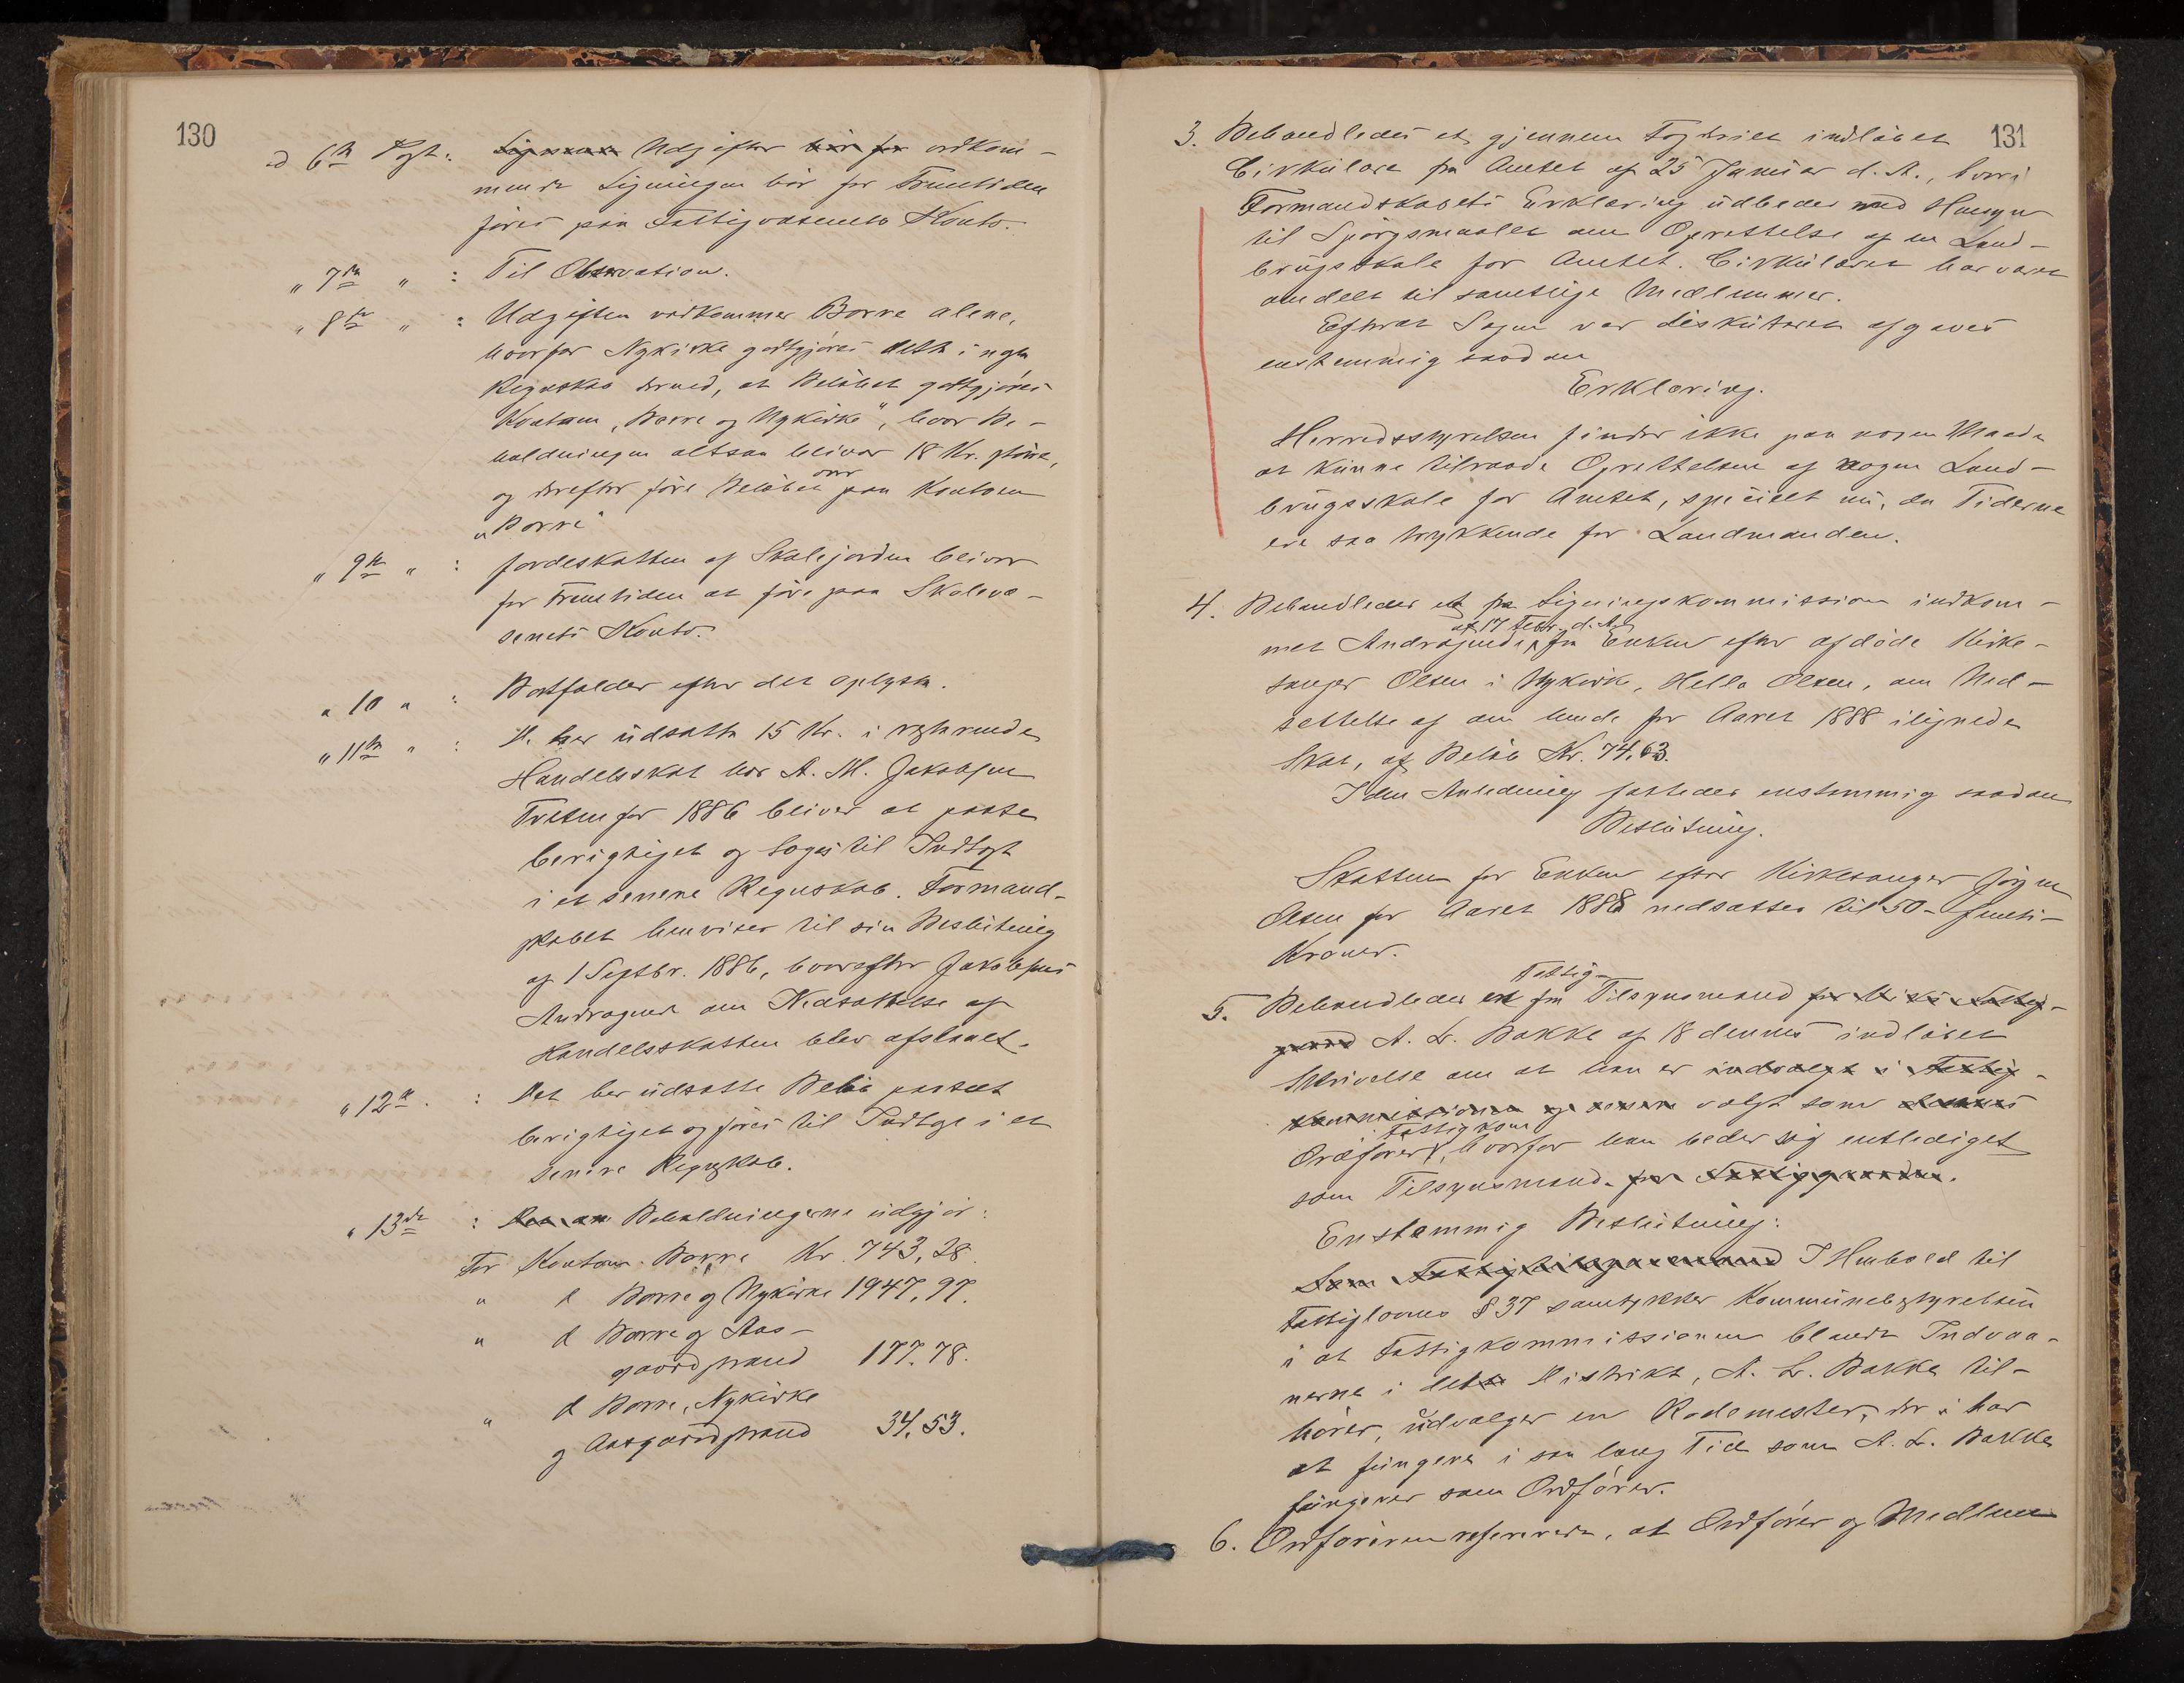 130
ad 6te Post: Udgifter vedkom-
mende Ligningen bør for Fremtiden
føres paa Fattigvæsenets Konto.
„ 7de „ : Til Observation.
„ 8de „ : Udgiften vedkommer Borre alene,
hvorfor Nykirke godtgjøres dette i nyt
Regnskab derved, at Beløbet godtgjøres
Kontoen „Borre og Nykirke“, hvor Be-
holdningen altsaa bliver 18 Kr. større,
og derefter føre Beløbet over paa Kontoen
„Borre“
„ 9de „ : Jordeskatten af Skolejorden bliver
for Fremtiden at føre paa Skolevæ-
senets Konto.
„ 10 „ : Bortfalder efter det oplyste.
„ 11te „ : De her udsatte 15 Kr. i resterende
Handelsskat hos A. M. Jakobsen
Tresen for 1886 bliver at paase
berigtiget og tages til Indtægt
i et senere Regnskab. Formand-
skabet henviser til sin Beslutning
af 1 Septbr. 1886, hvorefter Jakobsens
Andragende om Nedsættelse af
Handelsskatten blev afslaaet.
„ 12te : Det her udsatte Beløb paasees
berigtiget og føres til Indtægt i et
senere Regnskab.
„ 13de : Beholdningerne udgjør:
For Kontoen Borre Kr. 743,28
„ d Borre og Nykirke 1947,97.
„ d Borre og Aas-
gaardstrand 177.78.
„ d Borre, Nykirke
og Aasgaardstrand 34.53.
131
3. Behandledes et gjennem Fogderiet indløbet
Cirkulære fra Amtet af 25 Januar d. A., hvori
Formandskabets Erklæring udbedes med Hensyn
til Spørgsmaalet om Oprettelse af en Land-
brugsskole for Amtet. Cirkulæret har været
omdelt til samtlige Medlemmer.
Efterat Sagen var diskuteret afgaves
enstemmig saadan
Erklæring.
Herredsstyrelsen finder ikke paa nogen Maade
at kunne tilraade Oprettelsen af nogen Land-
brugsskole for Amtet, specielt nu, da Tiderne
ere saa trykkende for Landmanden.
4. Behandledes et fra Ligningskommission indkom-
met Andragende af 17 Febr. d. A. fra Enken efter afdøde Kirke-
sanger Olsen i Nykirke, Helle Olsen, om Ned-
sættelse af den hende for Aaret 1888 ilignede
Skat, af Beløb Kr. 74.63.
I den Anledning fattedes enstemmig saadan
Beslutning.
Skatten for Enken efter Kirkesanger Jørgen
Olsen for Aaret 1888 nedsættes til 50 - femti -
Kroner.
5. Behandledes en fra Fattig-Tilsynsmand for Fattig-
gaard A. L. Bakke af 18 dennes indløbet
Skrivelse om at han er indvalgt i Fattig-
kommissionen og senere valgt som dennes
Ordfører i Fattigkom, hvorfor han beder sig entlediget
som Tilsynsmand for Fattiggaarden.
Enstemmig Beslutning:
Som Fattigtilsynsmand I Henhold til
Fattiglovens § 37 samtykker Kommunebestyrelsen
i at Fattigkommissionen blandt Indvaa-
nerne i det Distrikt, A. L. Bakke til-
hører, udvælger en Rodemester, der har
at fungere i saa lang Tid som A. L. Bakke
fungerer som Ordfører.
6. Ordføreren refererede, at Ordfører og Medlem